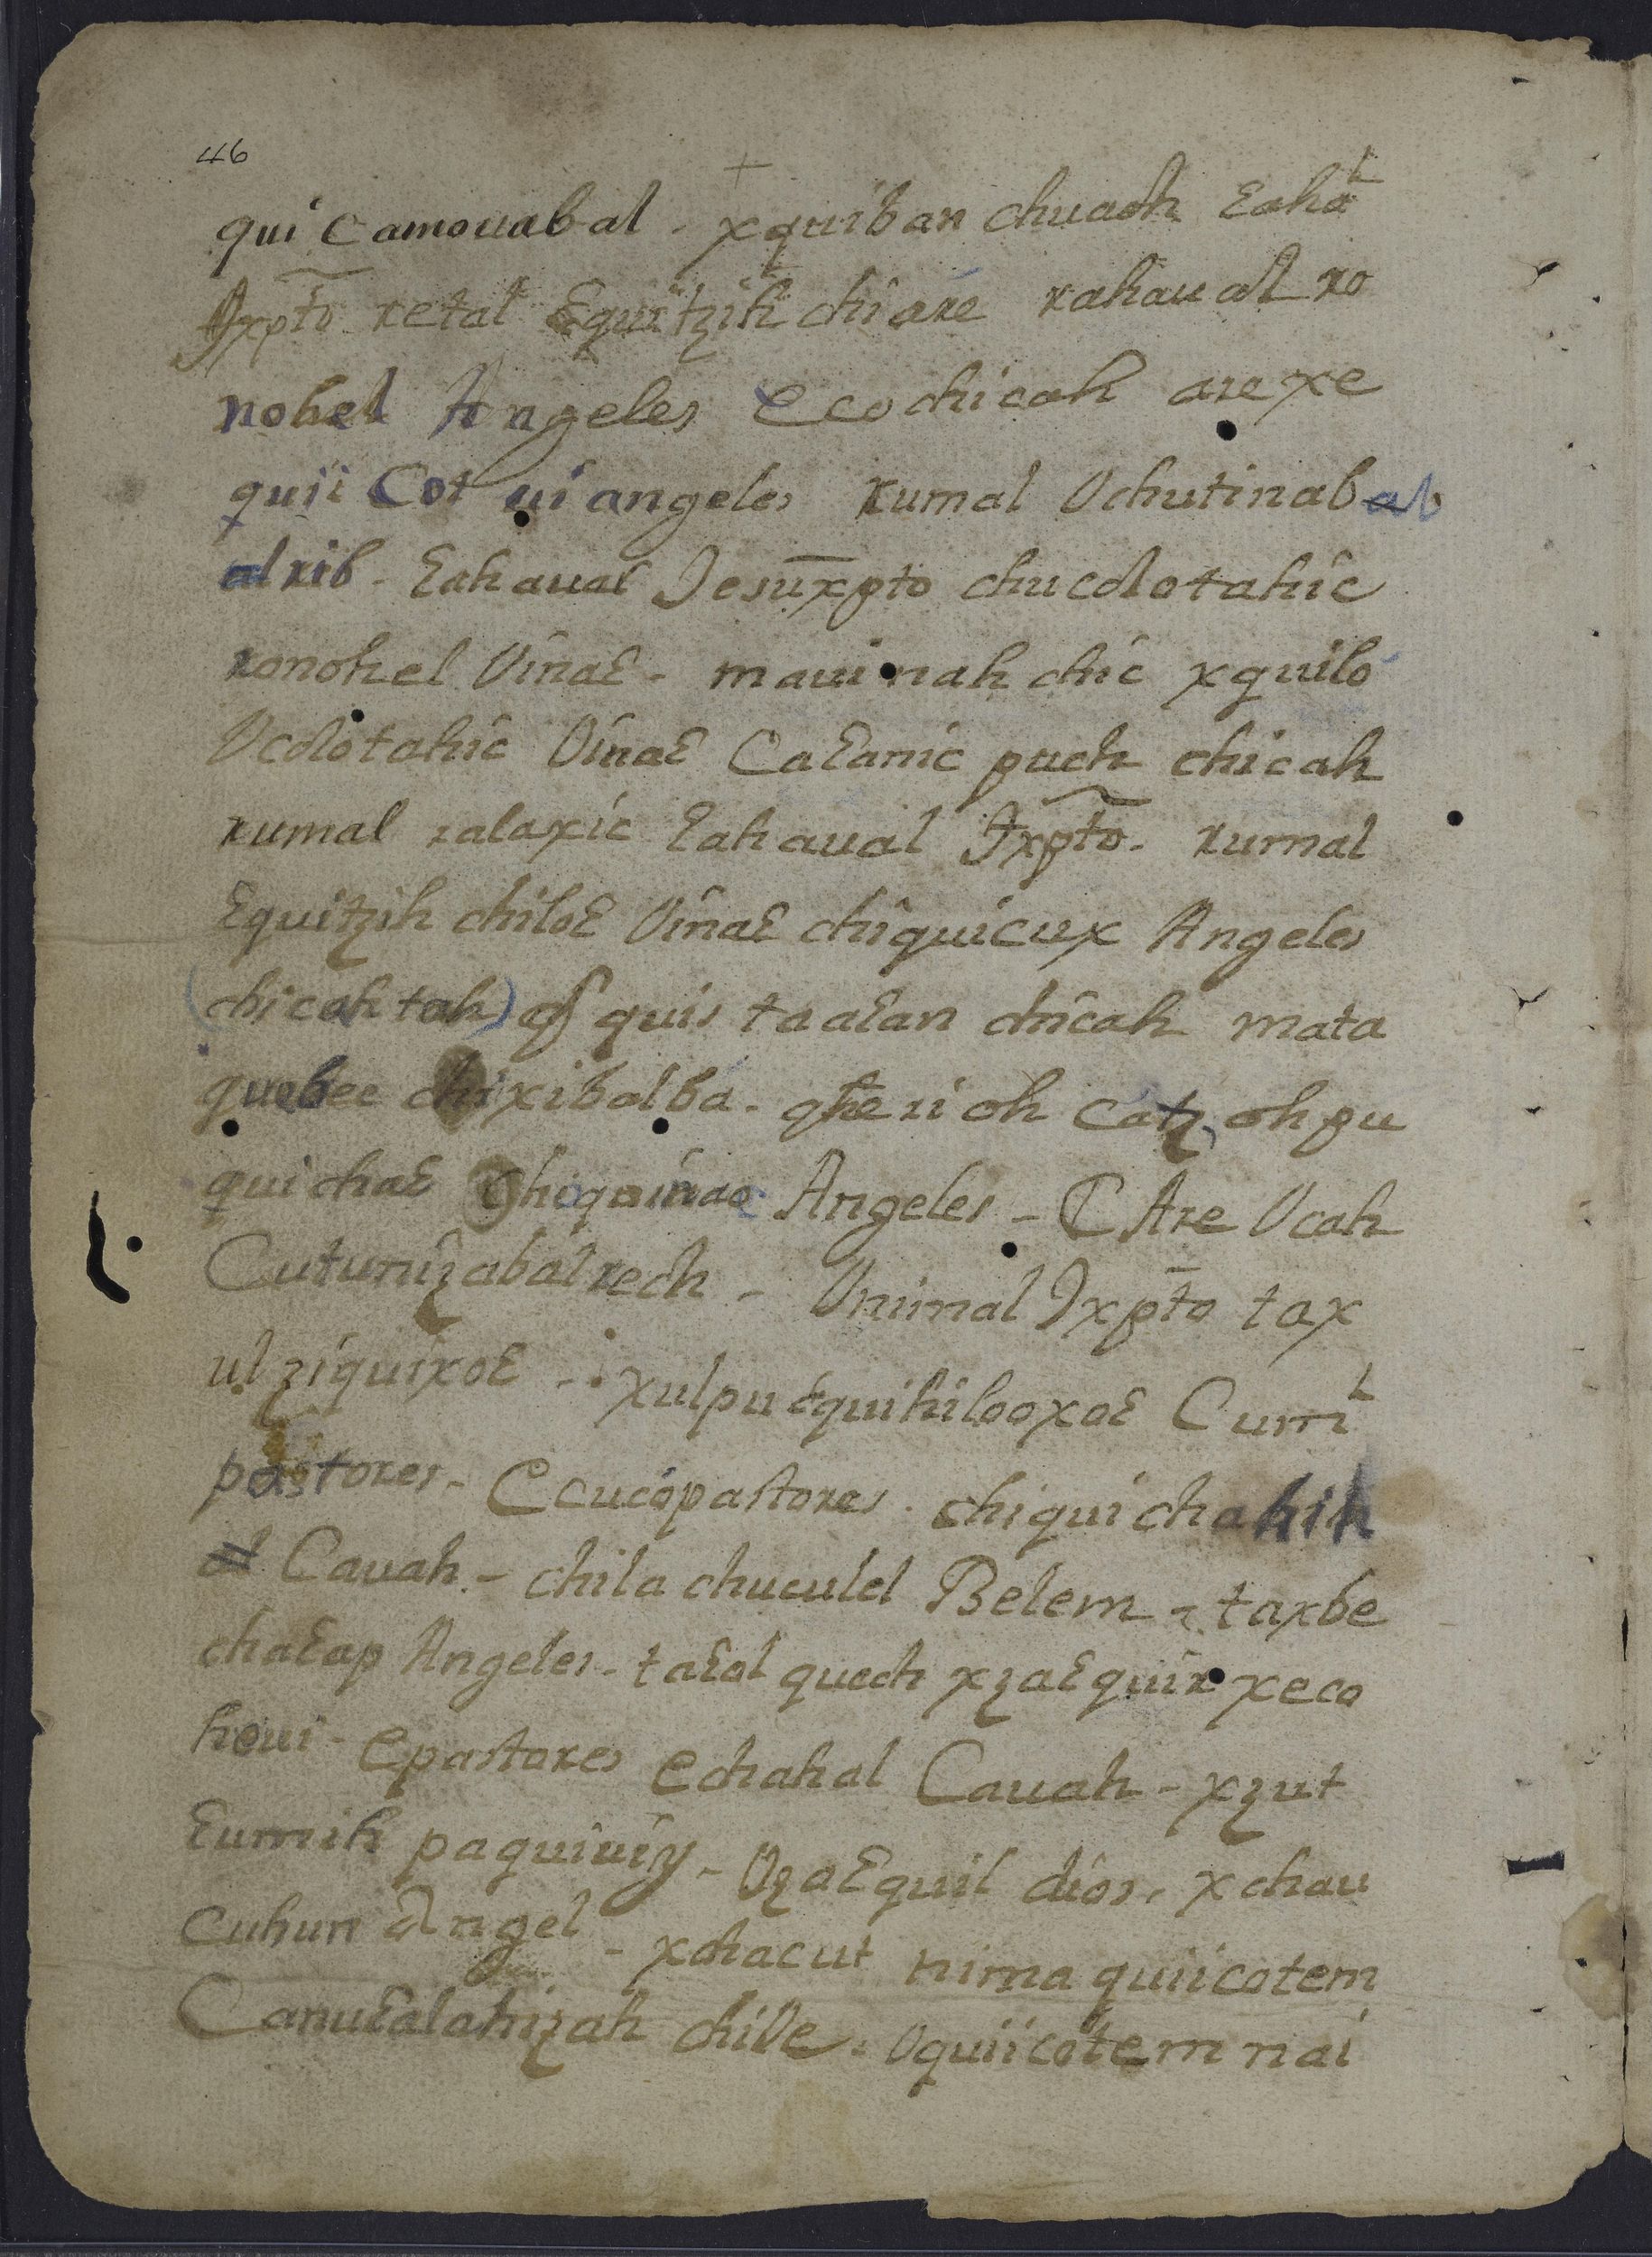 46
+
qui camouabal - xquiban chuach Ɛahaˡ
Jxp̄to retal Ɛquitzih chi are rahaual ro
nohel Angeles Ɛco chicah are xe
quii Cot ui angeles rumal Uchutinabab
al rib - Ɛahaual Jesuxp̄to chucolotahic
ronohel VinaƐ - maui nah chic xquilo
Ucolotahic VinaƐ CaƐanic puch chicah
rumal ralaxic Ɛahaual Jxp̄to - rumal
Ɛquitzih chiloƐ VinaƐ chiquicux Angeles
(chicah tah) quis ta aƐan chicah mata
quebec chi xibalba - qhe ri oh catz oh pu
quichaƐ Angeles - C Are Ucah
Cutunizabal rech - Unimal Jxp̄to tax
ul ziquixoƐ - xulpu Ɛquihilooxoc Cumˡ
pastores - Ccucopastores - chiqui chahih
al Cauah - chila chuculel Belem - taxbe
chaƐap Angeles - taƐal quech xzaƐquir xeco
houi - epastores echahal Cauah - xzut
Ɛumih paquiuiy - UzaƐquil dios, xchau
cuhun Angel - xchacut nima quiicotem
CanuƐalahizah chiue - Uquiicotem nai